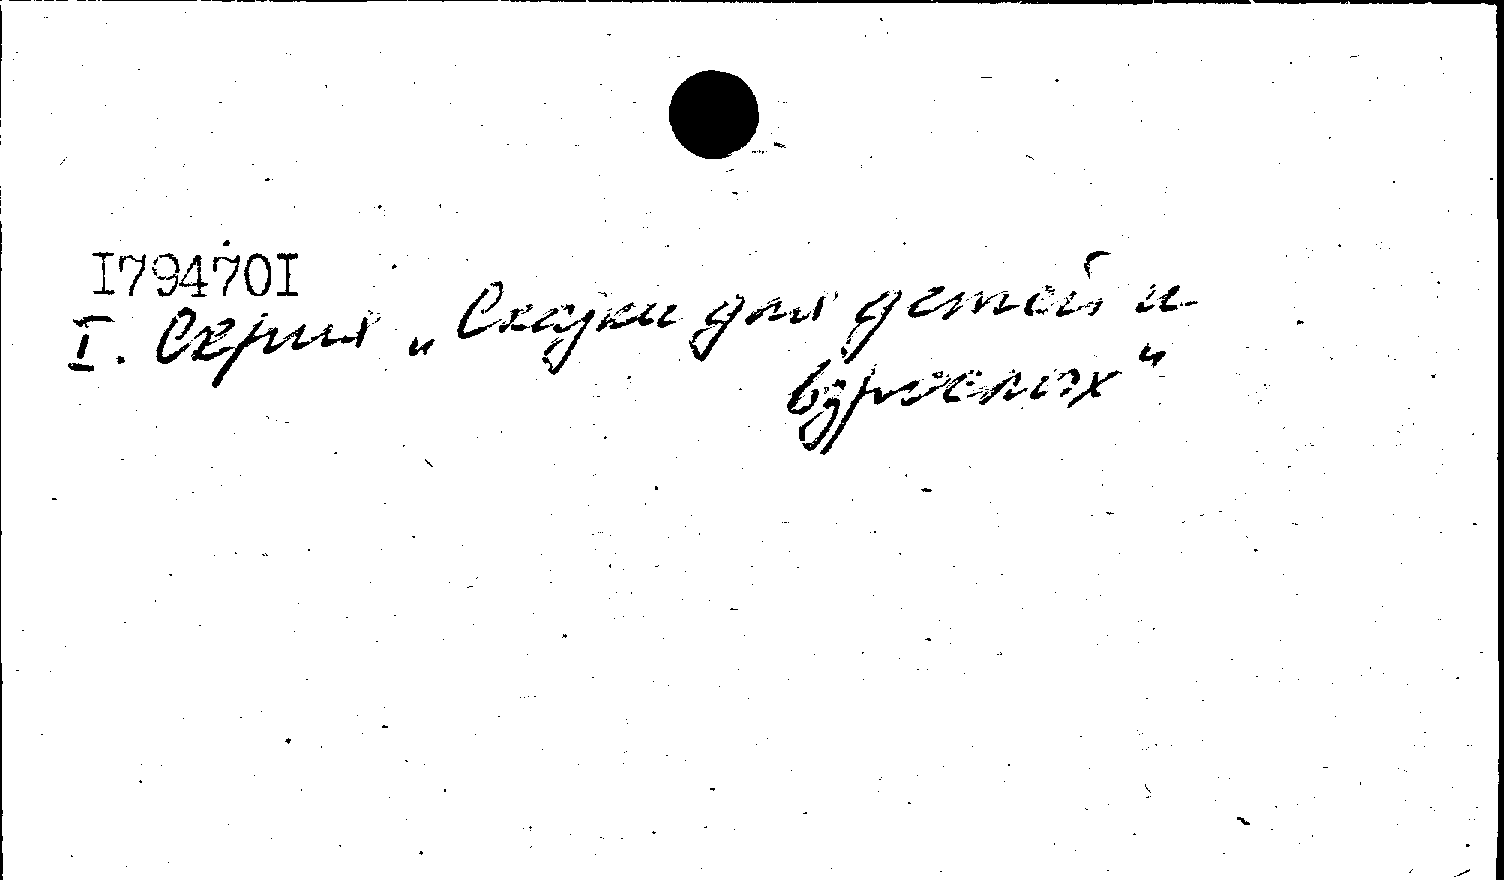 I794701
I. Серия „Сказки для детей и
взрослых“